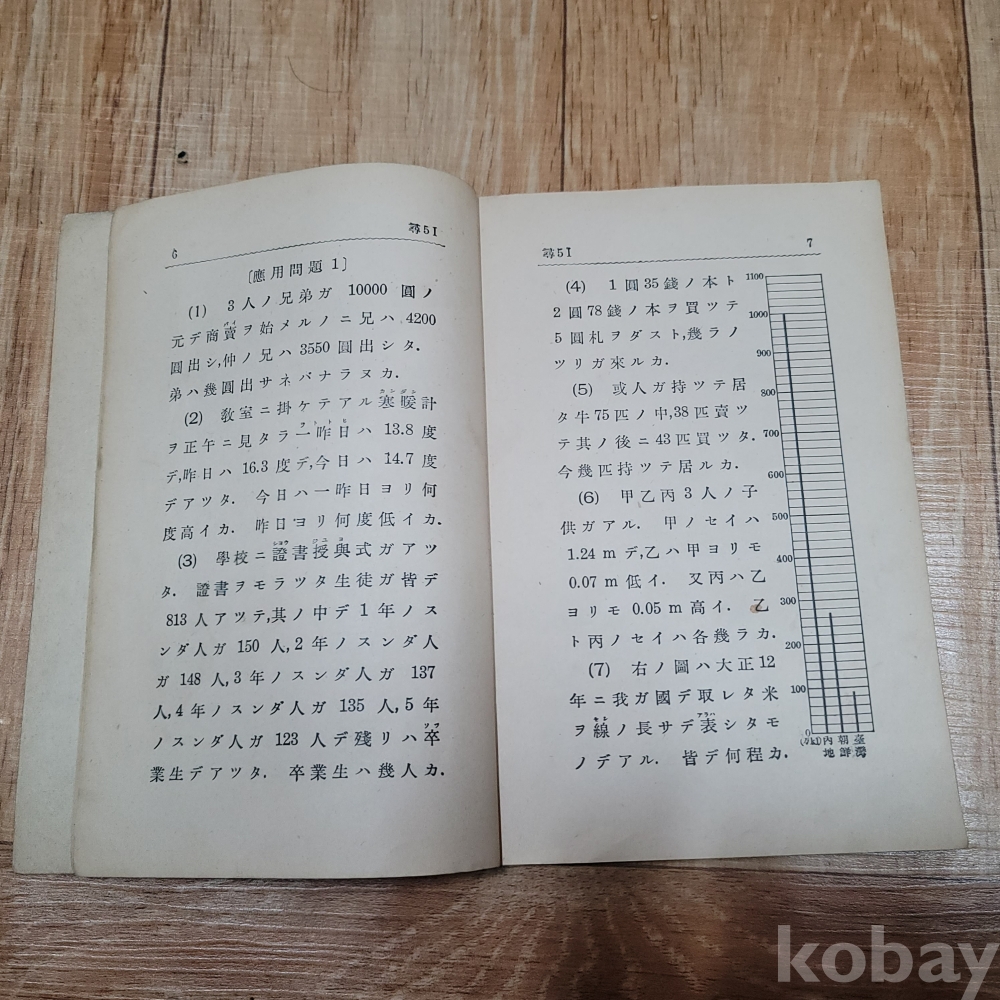 6
尋5I
〔應用問題1〕
(1) 3人ノ兄弟ガ 10000圓ノ
元デ商賣ヲ始メルノニ兄ハ4200
圓出シ,仲ノ兄ハ3550圓出シタ.
弟ハ幾圓出サネバナラヌカ.
(2) 敎室ニ掛ケテアル寒暖計
ヲ正午ニ見タラ一昨日ハ 13.8度
デ,昨日ハ 16.3度デ,今日ハ 14.7度
デアツタ. 今日ハ一昨日ヨリ何
度高イカ. 昨日ヨリ何度低イカ.
(3) 學校ニ證書授與式ガアツ
タ. 證書ヲモラツタ生徒ガ皆デ
813人アツテ,其ノ中デ1年ノス
ンダ人ガ 150人,2年ノスンダ人
ガ 148人,3年ノスンダ人ガ 137
人,4年ノスンダ人ガ 135人,5年
ノスンダ人ガ 123人デ殘リハ卒
業生デアツタ. 卒業生ハ幾人カ.
尋5I
7
(4) 1圓35錢ノ本ト
2圓78錢ノ本ヲ買ツテ
5圓札ヲダスト,幾ラノ
ツリガ來ルカ.
(5) 或人ガ持ツテ居
タ牛75匹ノ中,38匹賣ツ
テ其ノ後ニ43匹買ツタ.
今幾匹持ツテ居ルカ.
(6) 甲乙丙3人ノ子
供ガアル. 甲ノセイハ
1.24mデ,乙ハ甲ヨリモ
0.07m低イ. 又丙ハ乙
ヨリモ0.05m高イ. 乙
ト丙ノセイハ各幾ラカ.
(7) 右ノ圖ハ大正12
年ニ我ガ國デ取レタ米
ヲ線ノ長サデ表シタモ
ノデアル. 皆デ何程カ.
1100
1000
900
800
700
600
500
400
300
200
100
0
內地
朝鮮
臺灣
kobay